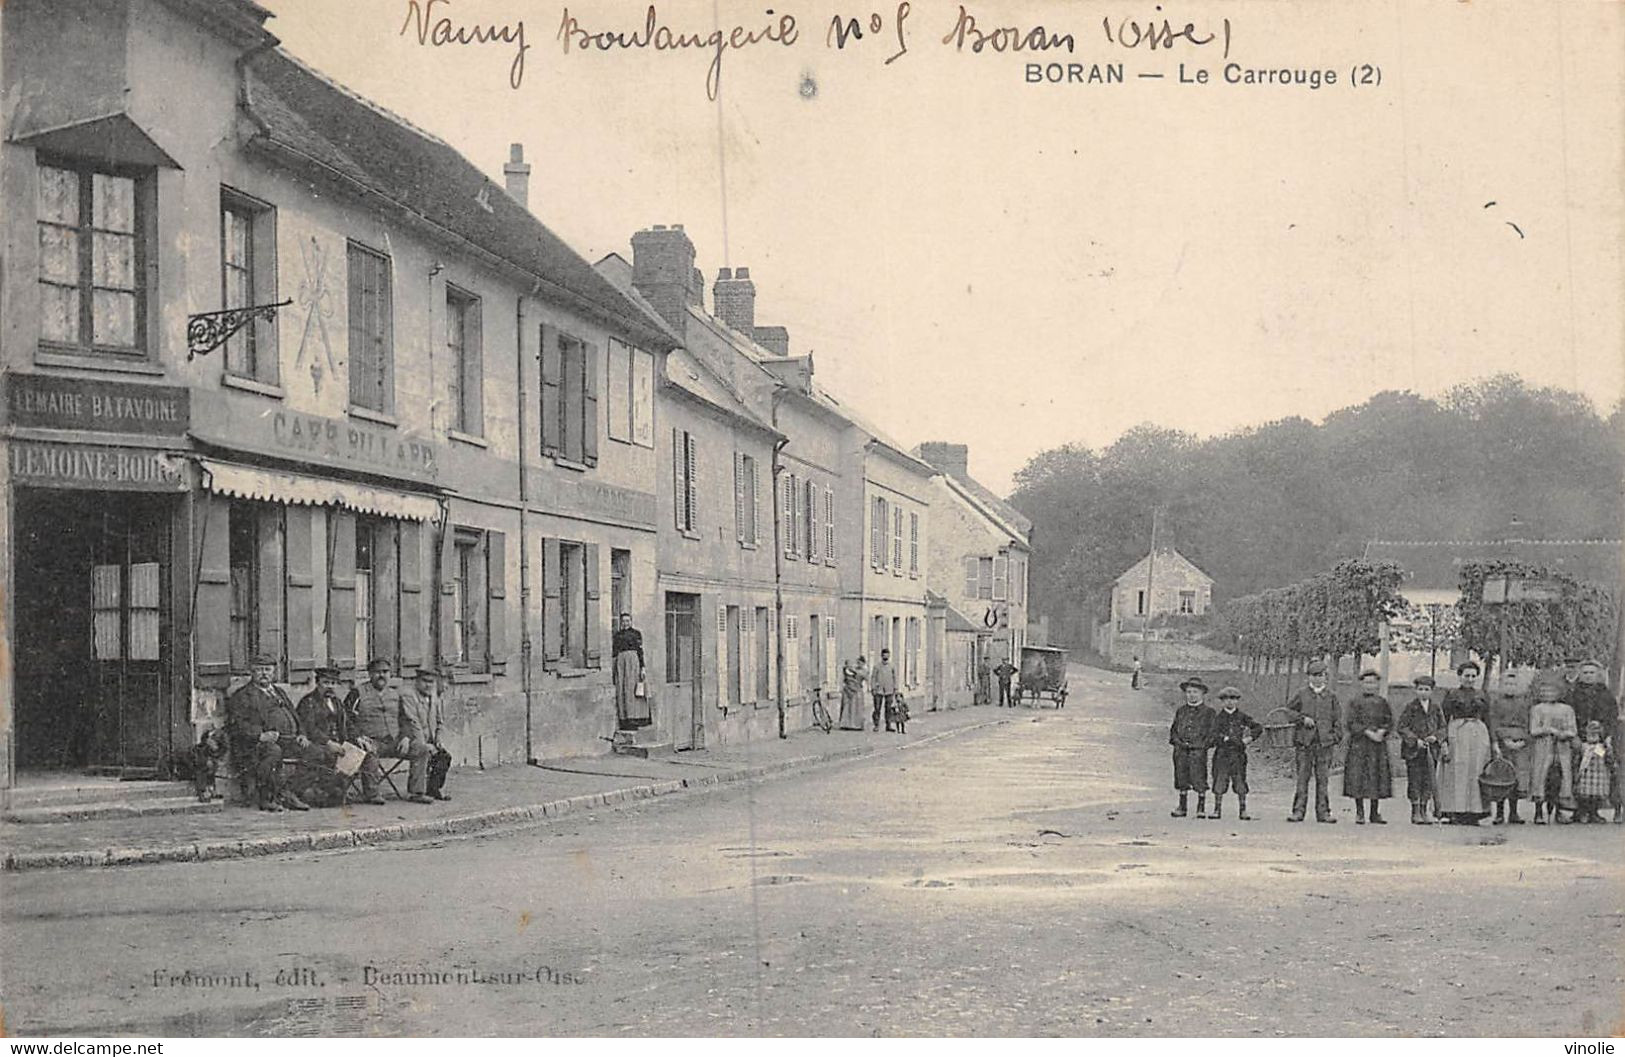 Vamy Boulangerie No 5 Boran (Oise)
BORAN — Le Carrouge (2)
LEMAIRE-BATAVOINE
LEMOINE-BOUR
CAFÉ BILLARD
Frémont, édit. - Beaumont-sur-Oise
https://www.delcampe.net
vinolie